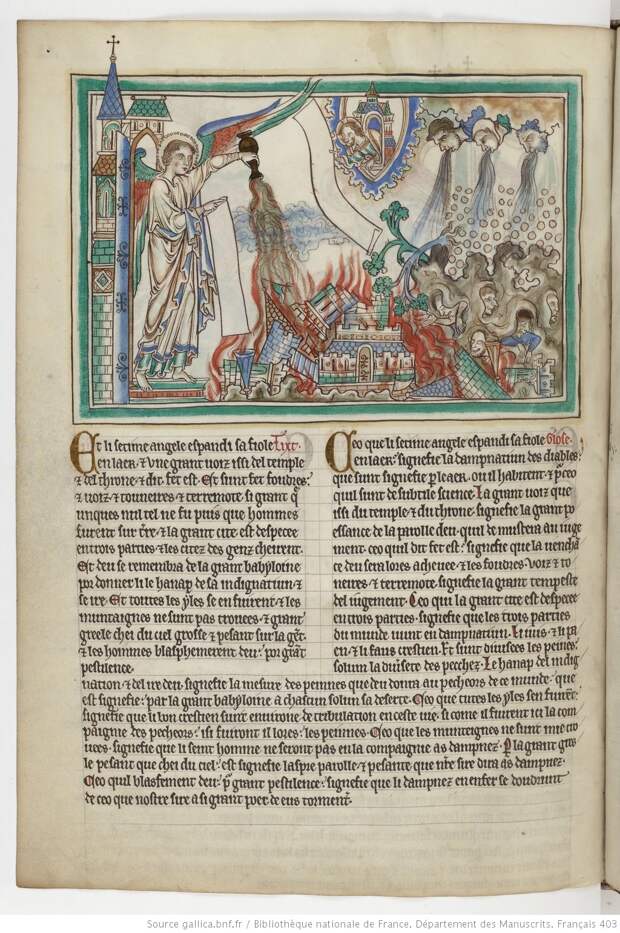 Et li setime angele espandi sa fiole Tixt.
en laer · & une grant uoiz issi del temple
& del throne · & dit · fet est · Et sunt fet foudres ·
& uoiz · & touneires · & terremote · si grant q
unques mil tel ne fu puis que hommes
furent sur tere · & la grant cite est despecee
en trois parties · & les citez des genz cheirent.
Et deu se remenbra de la grant babyloine
por donner li le hanap de sa indignatiun &
se ire · Et toutes les yles se en fuirent · & les
muntaignes ne sunt pas trouees · & grant
greele chei du ciel grosse & pesant sur la get ·
& les hommes blasphemerent deu · por grant
pestilence.
Ceo que li setime angele espandi sa fiole Glose.
en laer · signefie la dampnatiun des diables ·
que sunt signefie p leaer · ou il habitent · & p ceo
quil sunt de subtile science · La grant uoiz que
issi du temple & du throne · signefie la grant po
essance de la parolle deu · quil de mustera au iuge
ment · ceo quil dit fet est · signefie que la uencha
ce deu sera lores acheuee · & les foudres · uoiz & to
neires · & terremote · signefie la grant tempeste
del iugement · Ceo que la grant cite est despecee
en trois parties · signefie que les trois parties
du munde uunt en dampnatiun · li iuis · & li pa
en · & li faus crestien · Et sunt diuisees les peines ·
solum la diuisete des pecchez · Le hanap del indig
natiun · & del ire deu · signefie la mesure des peinnes que deu dorra au pecheors de ce munde · que
est signefie · par la grant babyloine a chascun solum sa deserte · Ceo que tutes les yles sen fuirent ·
signefie que li bon crestien sunt enuirone de tribulation en ceste uie · si come il fuirent ici la com
paignie des pecheors · isi fuiront il lores · les peinnes · Ceo que les munteignes ne sunt mie tro
uees · signefie que li seint homme ne seront pas en la compaignie as dampnez · P la grant gresle
le pesant que chei du ciel · est signefie laspre parolle & pesante que nostre sire dira as dampnez ·
Ceo quil blasfment deu · p grant pestilence · signefie que li dampnez en enfer se doudrunt
de ceo que nostre sire a si grant poer de eus torment.
Source gallica.bnf.fr / Bibliothèque nationale de France. Département des Manuscrits. Français 403